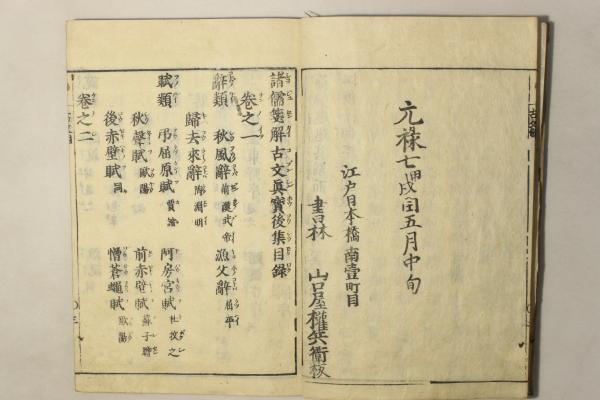 元禄七甲戌閏五月中旬
江戸日本橋南壹町目
書林 山口屋權兵衛板
諸儒箋解古文眞寳後集目録
卷之一
辭類 秋風辭 前漢武帝 漁父辭 屈平
歸去來辭 陶淵明
賦類 弔屈原賦 賈誼 阿房宮賦 杜牧之
秋聲賦 歐陽 前赤壁賦 蘇子瞻
後赤壁賦 同 憎蒼蠅賦 歐陽
卷之二